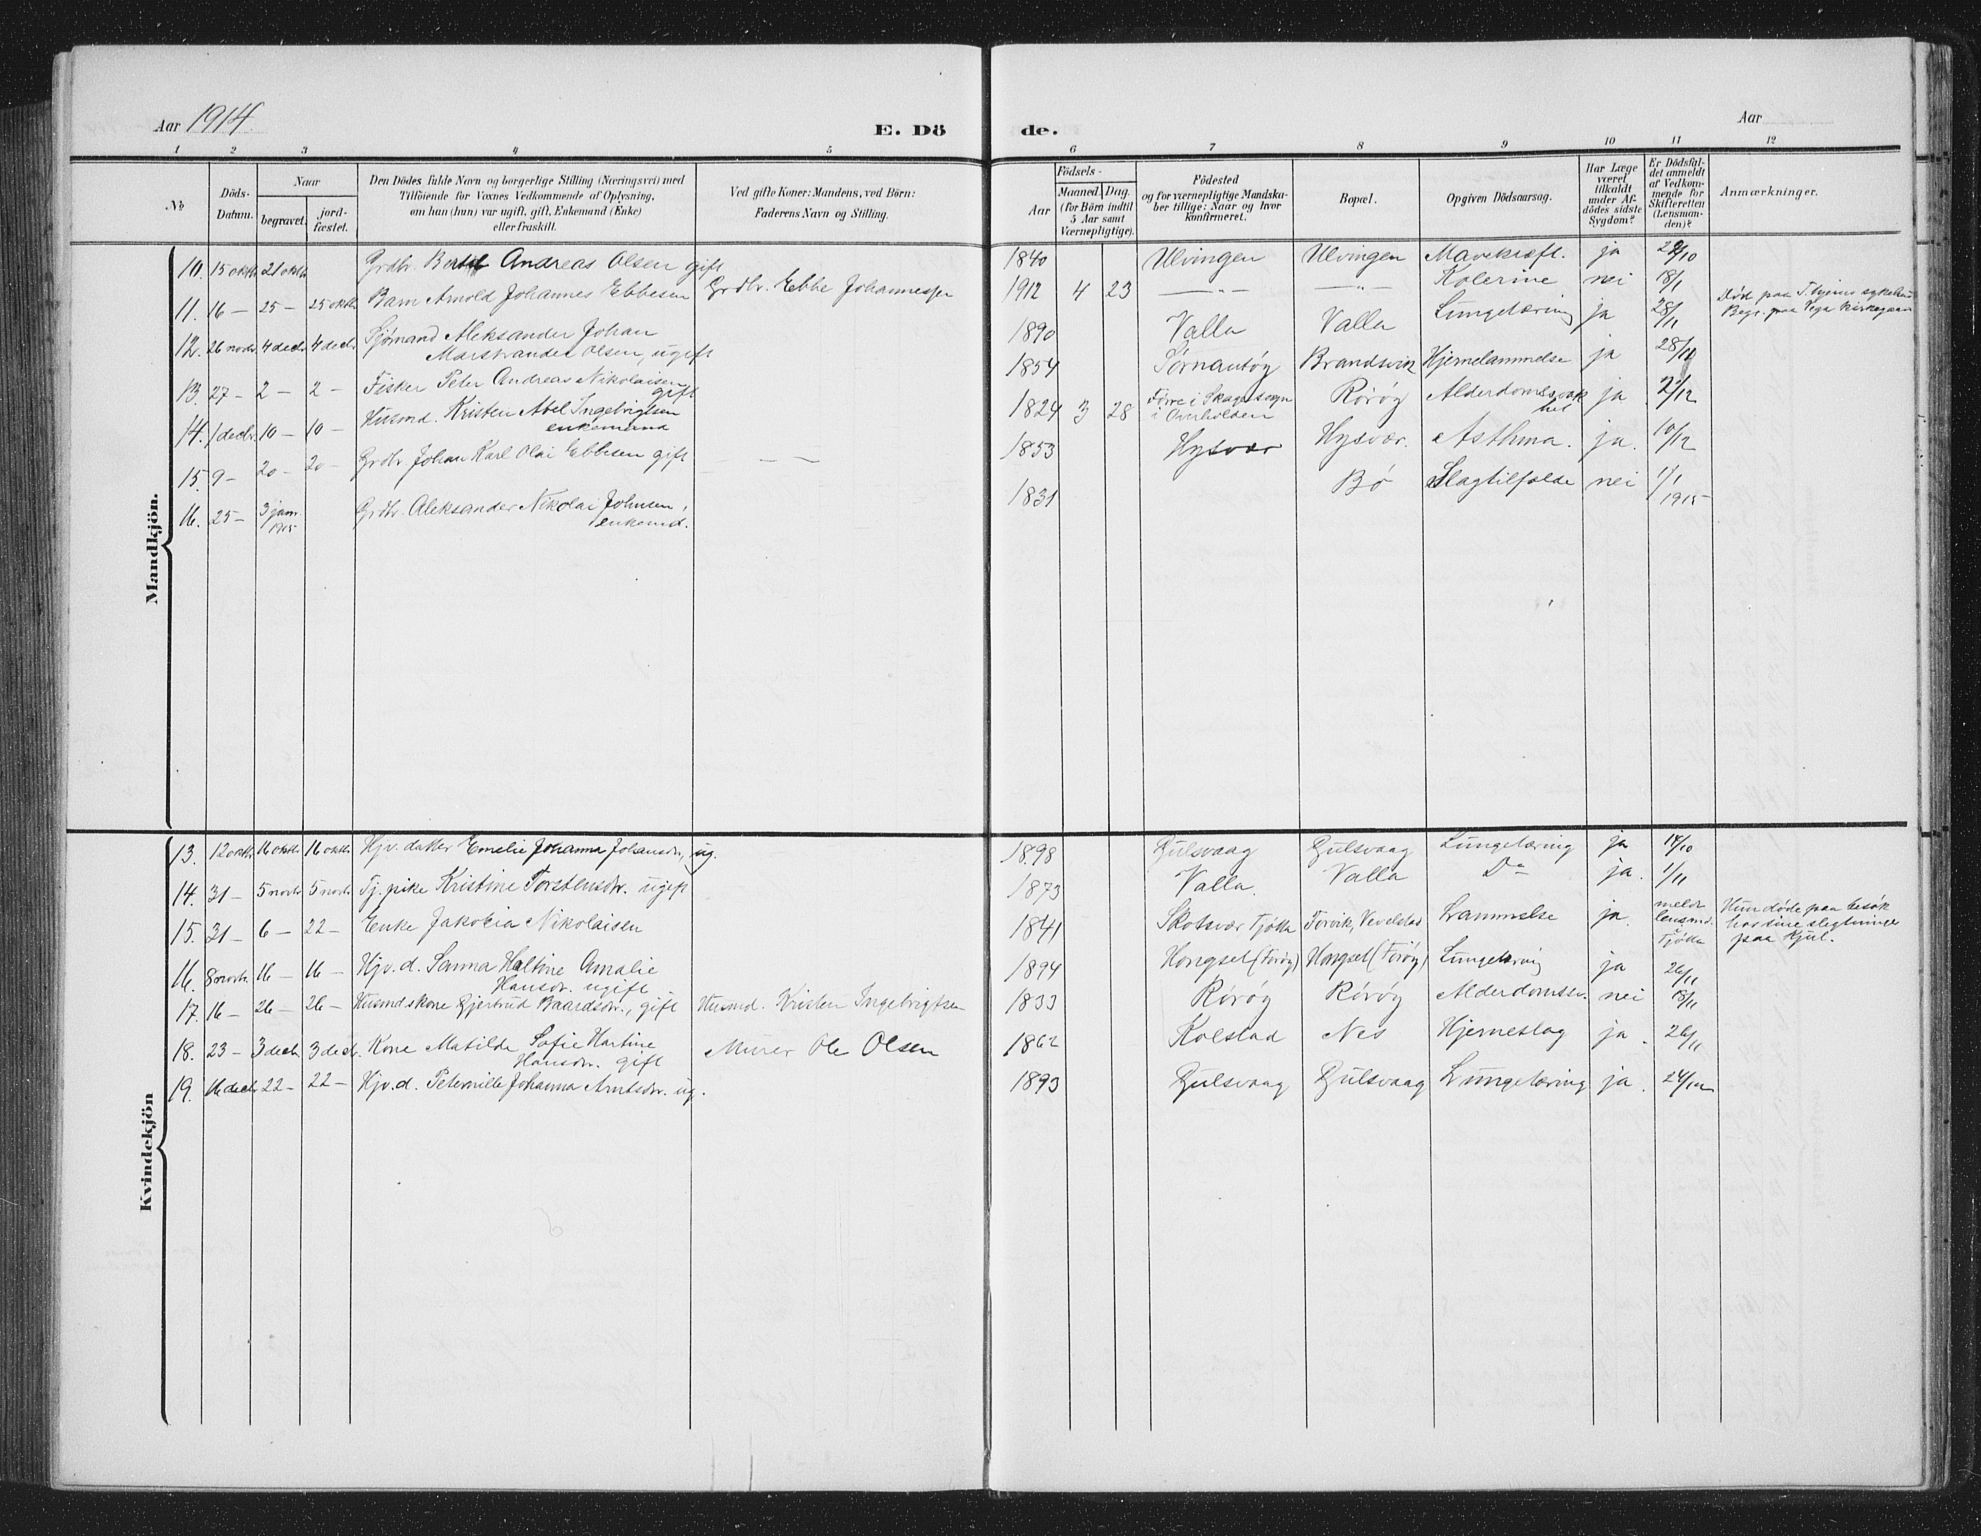 Aar 1914.
E. Dö de.
Aar
1 2 3 4 5 6 7 8 9 10 11 12
№
Döds-Datum.
Naar
begravet.
jord-fæstet.
Den Dödes fulde Navn og borgerlige Stilling (Næringsvei) med
Tilföiende for Voxnes Vedkommende af Oplysning,
om han (hun) var ugift, gift, Enkemand (Enke)
eller fraskilt.
Ved gifte Koner: Mandens, ved Börn:
Faderens Navn og Stilling.
Födsels-
Aar
Maaned. Dag.
(for Börn indtil
5 Aar samt
Værnepligtige).
Födested
og for værnepligtige Mandska-
ber tillige: Naar og hvor
konfirmeret.
Bopæl.
Opgiven Dödsaarsag.
Har Læge
været
tilkaldt
under Af-
dödes sidste
Sygdom?
Er Dödsfal-
det anmeldt
af Vedkom-
mende for
Skifteretten
(Lensman-
den)?
Anmærkninger.
Mandkjön.
10. 15 oktb. 21 oktb. Grdbr. Andreas Olsen gift 1840 Ulvingen Ulvingen Mavekræft. ja /10
11. 16 — 25 — 25 oktb. Barn Arnold Johannes Ebbesen Grdbr. Ebbe Johannessen 1912 4 23 —„— —„— Kolerine nei 18/1
12. 26 novbr. 4 decbr. 4 decbr. Sjømand Aleksander Johan
Marstrander Olsen, ugift 1890 Valla Valla Lungetæring ja 28/11 Død paa sykehus
Begr. paa Vega kirkegaar
13. 27 — 2 — 2 — Fisker Peter Andreas Nikolaisen
gift 1854 Sørnautøy Brandsvik Hjernelammelse ja 28/
14. 1 decbr. 10 — 10 — Husmd. Kristen Abel Ingebrigtsen
enkemand 1824 3 28 i Skage sogn
i Overhalden Rørøy Alderdomssvak
het ja 2/12
15. 9 — 20 — 20 — Grdbr. Johan Karl Olai Ebbesen gift — — 1853 Hysvær Hysvær. Asthma. ja. 10/12
16. 25 — 3 jan
1915 Grdbr. Aleksander Nikolai Johnsen,
enkemd. 1831 Bø Slagtilfælde nei 1/1
1915
Kvindekjön
13. 12 oktb. 16 oktb. 16 oktb. Hjv. datter Emelie Johanna Johansdr., ug. 1898 Gulsvaag Gulsvaag Lungetæring ja 14/10
14. 31 — 5 novbr. 5 novbr. Tj. pike Kristine Torstensdr. ugift 1873 Valla. Valla Do ja. 1/11
15. 31 — 6 — 22 — Enke Jakobia Nikolaisen 1841 Skotsvær Tjøtta Forvik, Vevelstad Lammelse ja. meldt
lensmd.
Tjøtta Hun døde paa besøk
hos sine slegtninger
paa Hjul.
16. 8 novbr. 16 — 16 — Hjv. d. Sanna Amalie
Hansdr. ugift 1894 Hongset (Forøy) Hongset (Forøy) Lungetæring ja 26/11
17. 16 — 26 — 26 — Husmdskone Gjertrud Baardsdr., gift Husmd. Kristen Ingebrigtsen 1833 Rørøy Rørøy Alderdomssv. nei 18/11
18. 23 — 3 decb. 3 decb. Kone Matilde Sofie Hartine
Hansdr. gift Murer Ole Olsen 1862 Kolstad Nes Hjerneslag ja. 26/11
19. 16 decb. 22 — 22 — Hjv. d. Peternille Johanna Arntsdr. ug. 1893 Gulsvaag Gulsvaag Lungetæring ja. 24/12